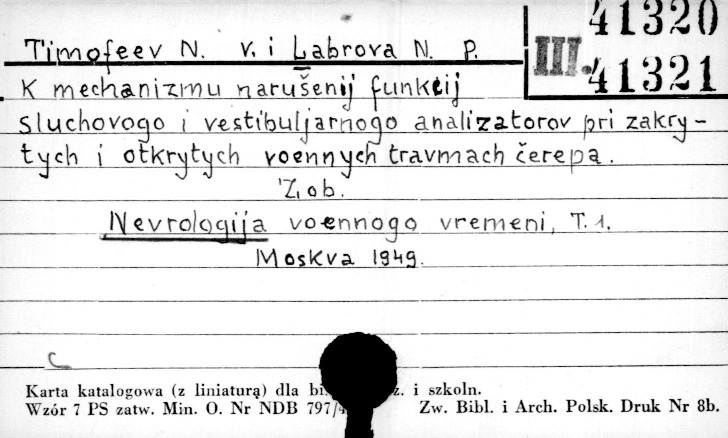 41320
Timofeev N. V. i Labrova N. P.
III.
41321
K mechanizmu narušenij funkcij
sluchovogo i vestibuljarnogo analizatorov pri zakry-
tych i otkrytych voennych travmach čerepa.
Zob.
Nevrologija voennogo vremeni, T. 1.
Moskva 1949.
C
Karta katalogowa (z liniaturą) dla i szkoln.
Wzór 7 PS zatw. Min. O. Nr NDB 797/ Zw. Bibl. i Arch. Polsk. Druk Nr 8b.